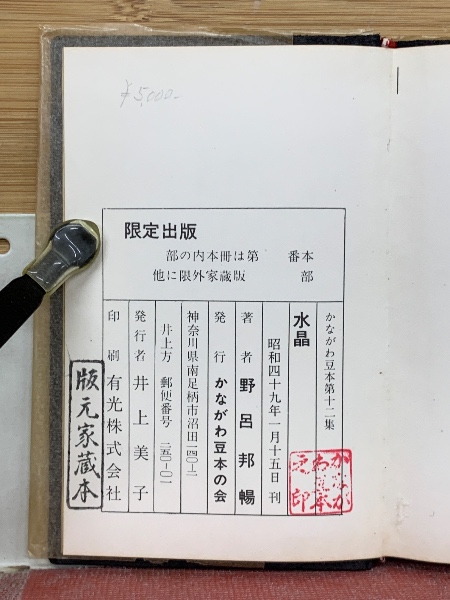 ¥5,000-
限定出版
部の内本冊は第 番本
他に限外家蔵版 部
かながわ豆本第十二集
水晶
昭和四十九年一月十五日 刊
著者 野呂邦暢
発行 かながわ豆本の会
神奈川県南足柄市沼田一四〇−二
井上方 郵便番号 二五〇−〇一
発行者 井上美子
印刷 有光株式会社
版元家蔵本
かながわ豆本之印